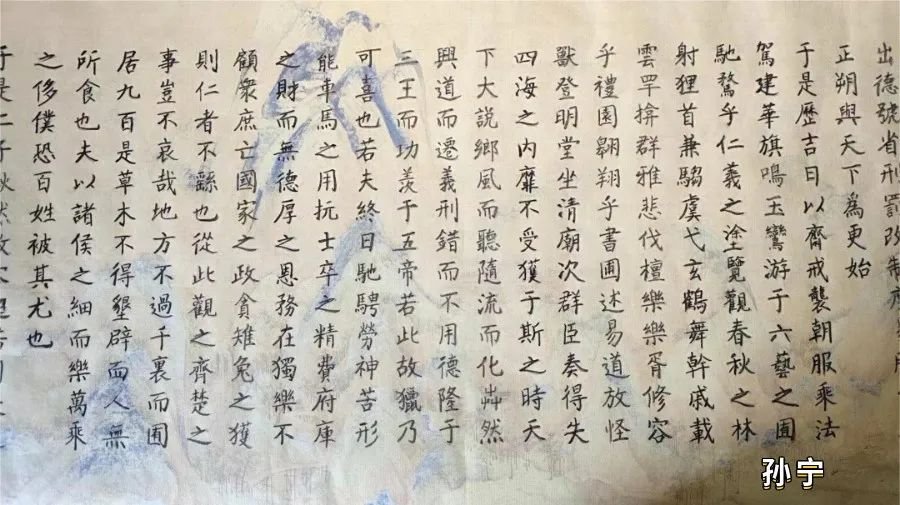 出德號省刑罰改制
正朔與天下為更始
于是歷吉日以齋戒襲朝服乘法
駕建華旗鳴玉鸞游于六藝之囿
馳騖乎仁義之塗覽觀春秋之林
射狸首兼騶虞弋玄鶴舞幹戚載
雲罕揜群雅悲伐檀樂樂胥修容
乎禮園翱翔乎書圃述易道放怪
獸登明堂坐清廟次群臣奏得失
四海之內靡不受獲于斯之時天
下大說鄉風而聽隨流而化芔然
興道而遷義刑錯而不用德隆于
三王而功羨于五帝若此故獵乃
可喜也若夫終日馳騁勞神苦形
能車馬之用抗士卒之精費府庫
之財而無德厚之恩務在獨樂不
顧衆庶亡國家之政貪雉兔之獲
則仁者不繇也從此觀之齊楚之
事豈不哀哉地方不過千裏而囿
居九百是草木不得墾辟而人無
所食也夫以諸侯之細而樂萬乘
之侈僕恐百姓被其尤也
于是二子
孙宁